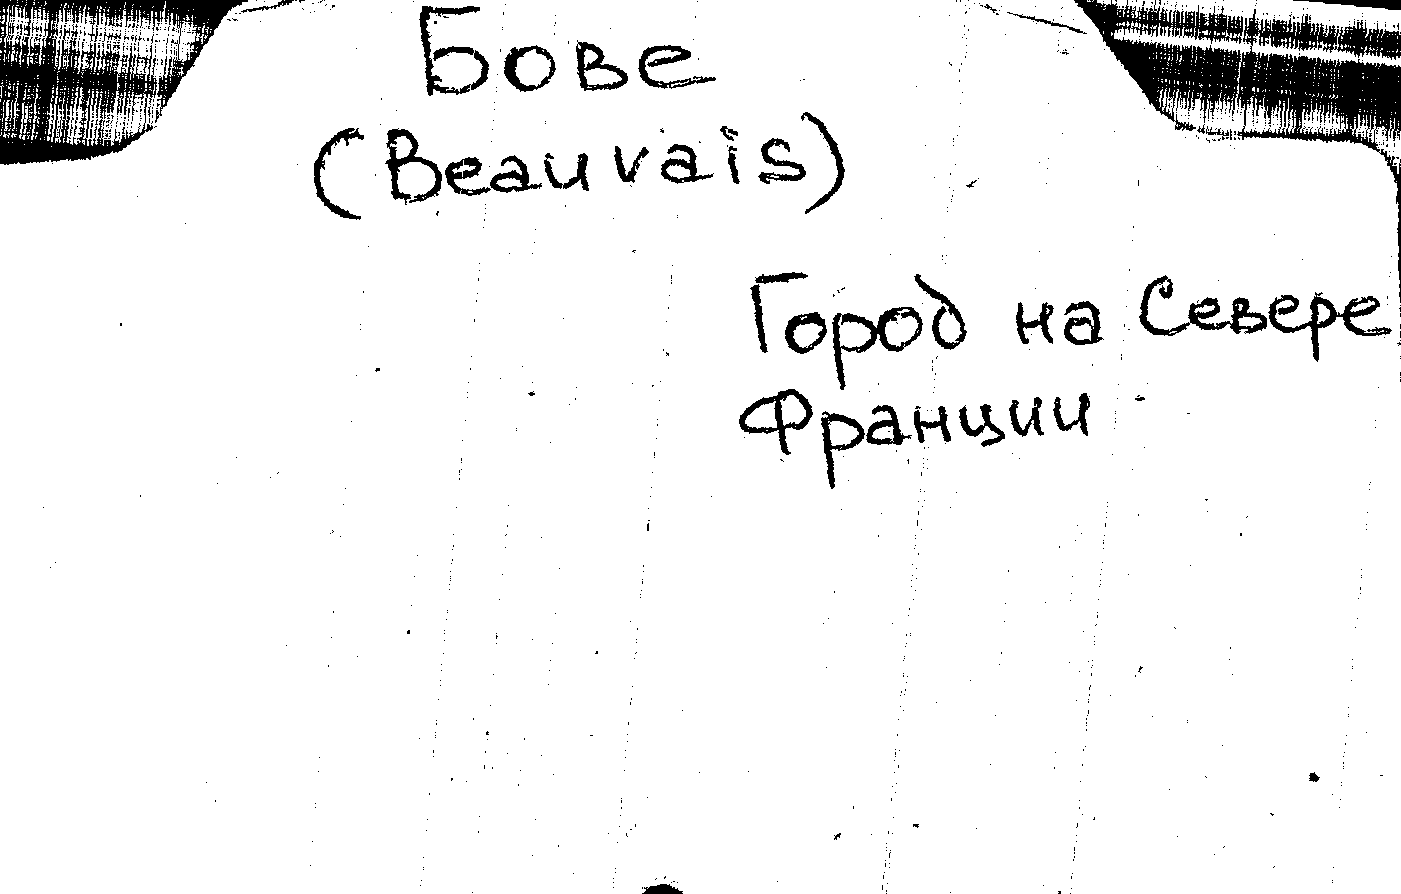 Бове
(Beauvais)
Город на Севере
Франции